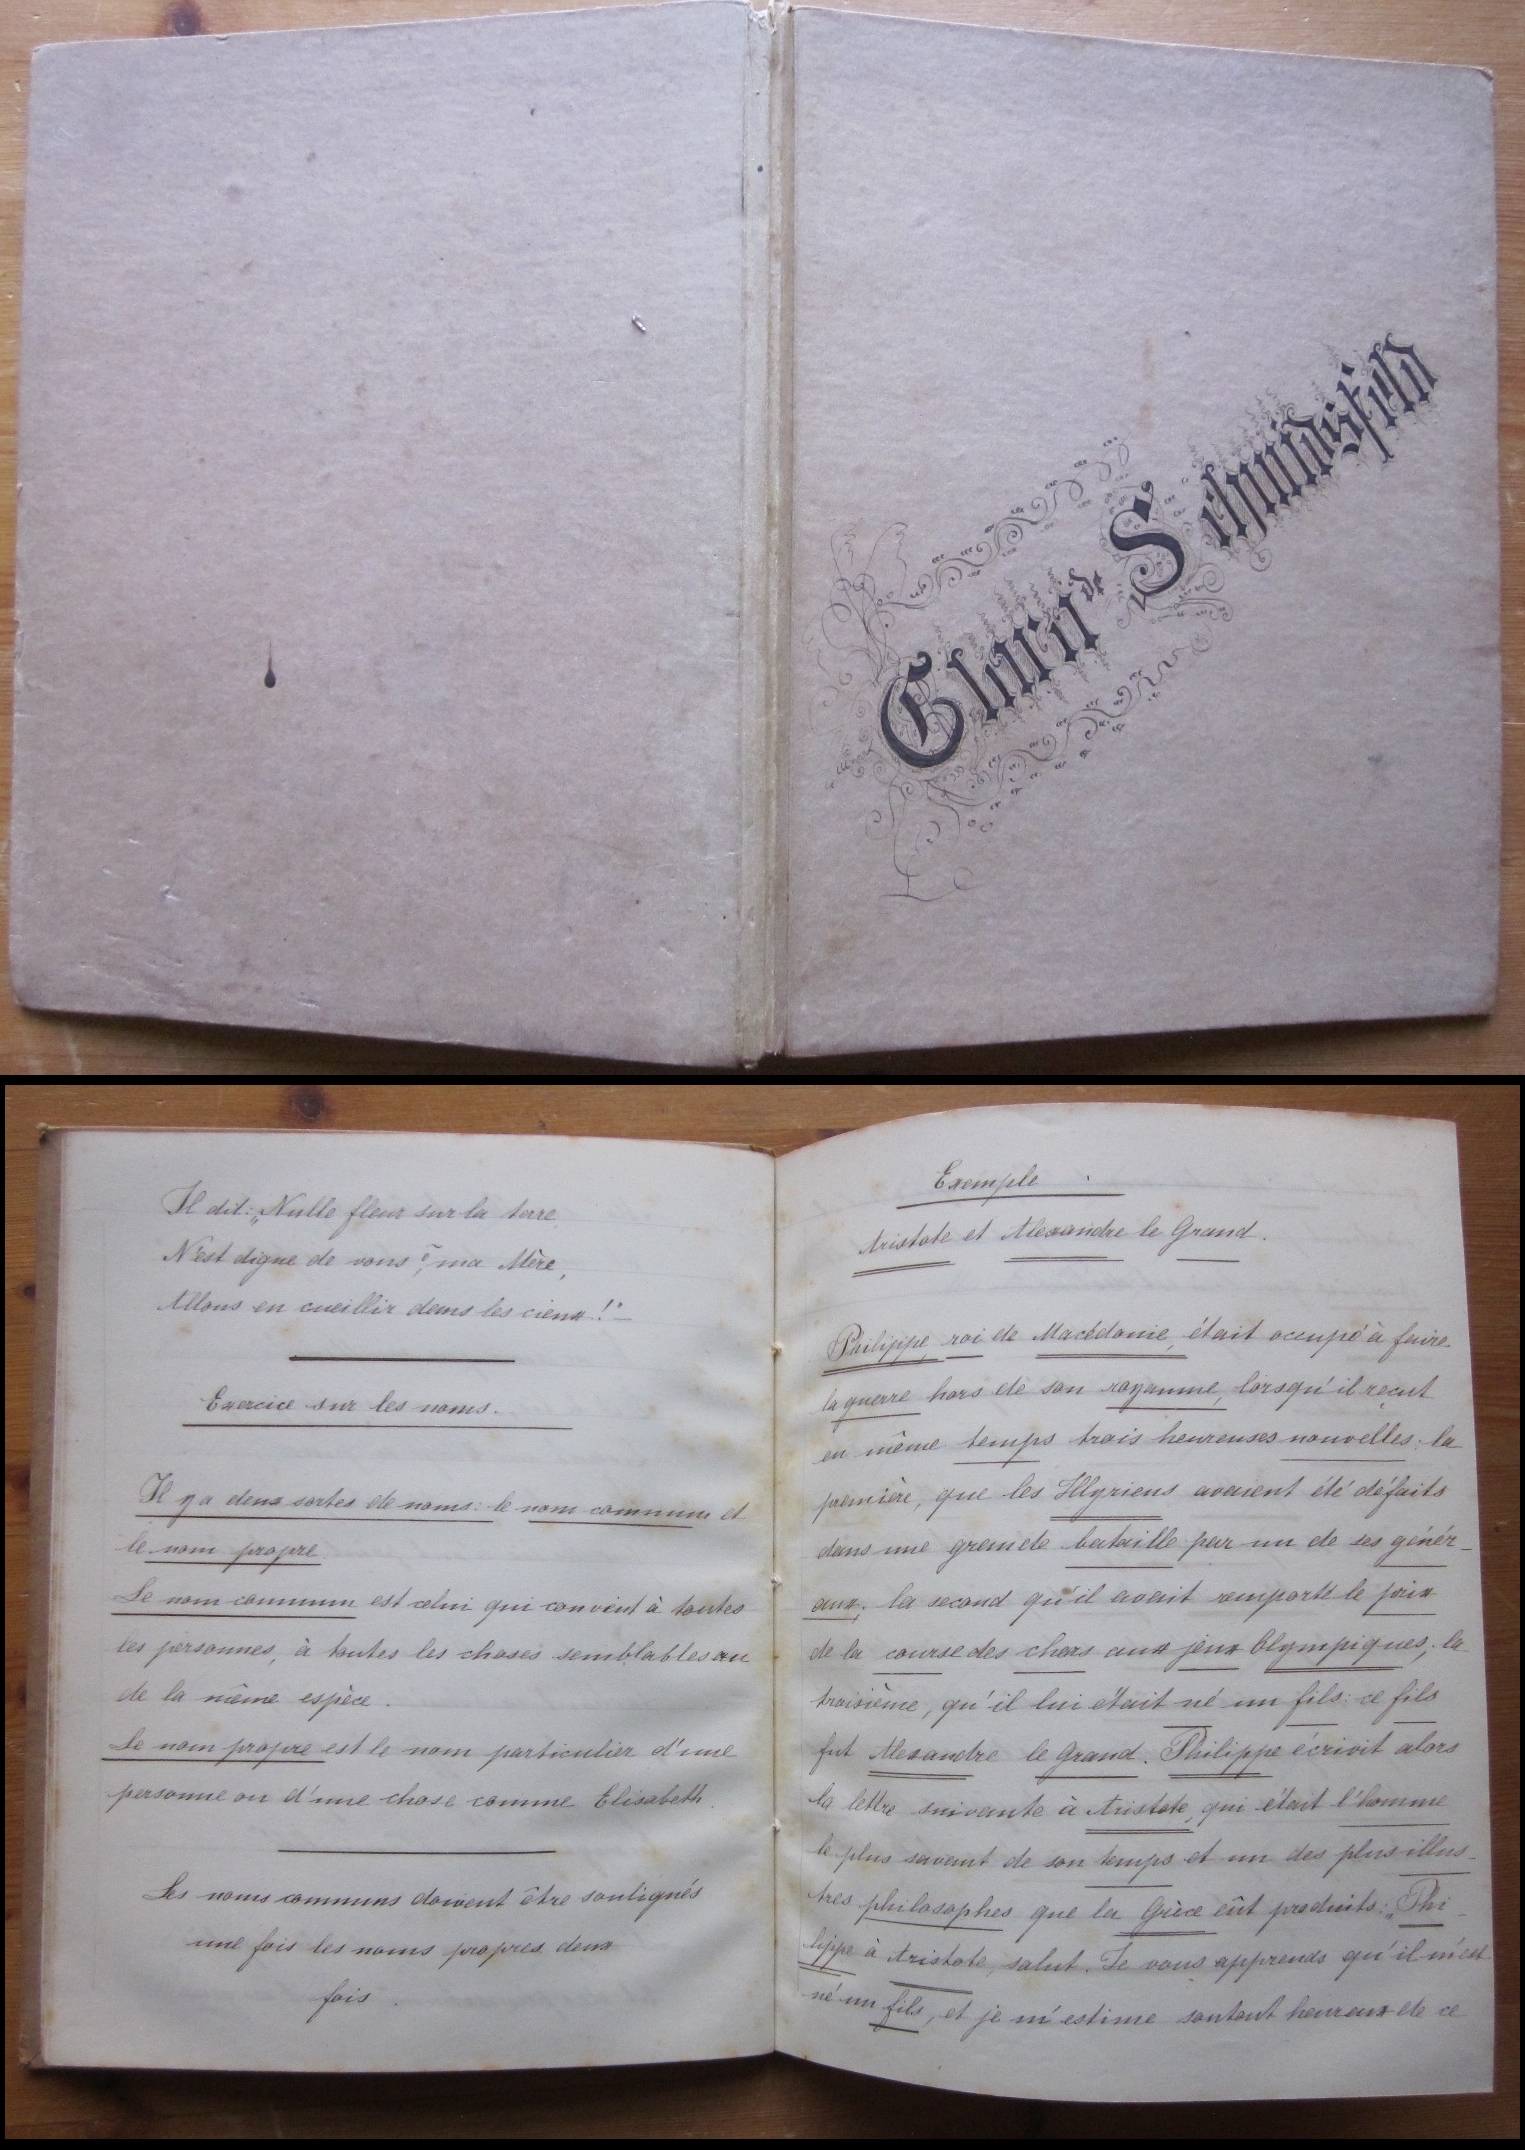 Clara de Schmidsfeld
Il dit: „Nulle fleur sur la terre
N'est digne de vous, ô, ma Mère,
Allons en cueillir dans les cieux!"
Exercice sur les noms.
Il y a deux sortes de noms: le nom commun et
le nom propre
Le nom commun est celui qui convient à toutes
les personnes, à toutes les choses semblables ou
de la même espèce.
Le nom propre est le nom particulier d'une
personne ou d'une chose comme Elisabeth.
Les noms communs doivent être soulignés
une fois les noms propres deux
fois.
Exemple.
Aristote et Alexandre le Grand.
Philippe, roi de Macédonie, était occupé à faire
la guerre hors de son royaume, lorsqu'il reçut
en même temps trois heureuses nouvelles: la
première, que les Illyriens avaient été défaits
dans une grande bataille par un de ses génér-
aux; la second qu'il avait remporté le prix
de la course des chars aux jeux Olympiques; la
troisième, qu'il lui était né un fils: ce fils
fut Alexandre le Grand. Philippe écrivit alors
la lettre suivante à Aristote, qui était l'homme
le plus savant de son temps et un des plus illus-
tres philosophes que la Grèce eût produits: „Phi-
lippe à Aristote, salut. Je vous apprends qu'il m'est
né un fils, et je m'estime surtout heureux de ce